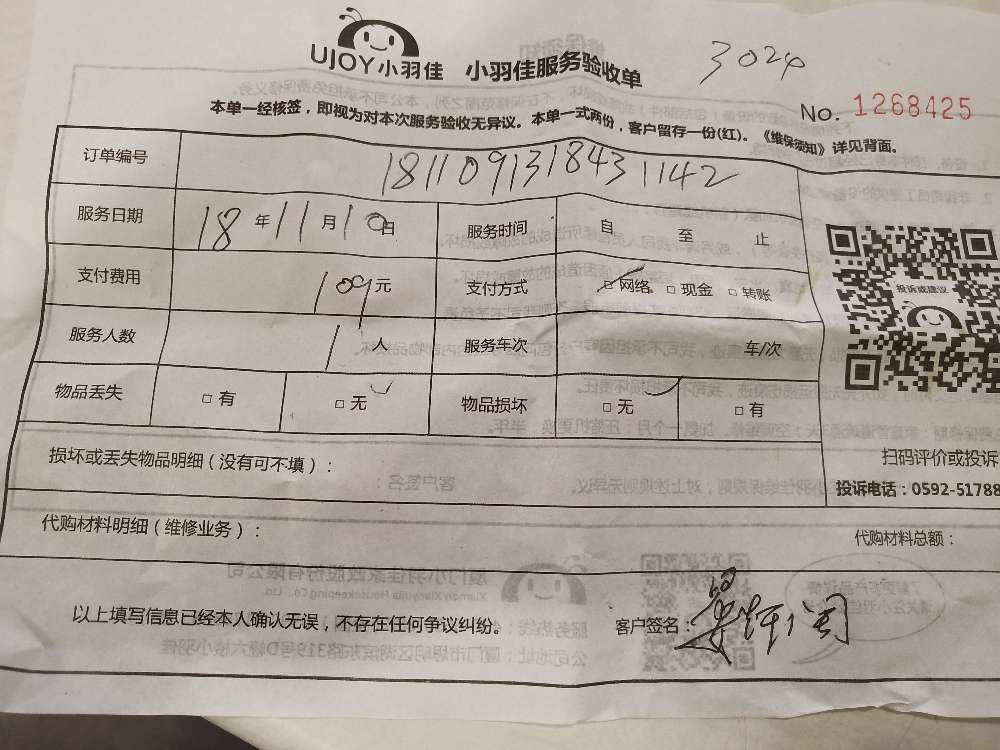 UJOY小羽佳 小羽佳服务验收单
3024
No. 1268425
本单一经核签，即视为对本次服务验收无异议。本单一式两份，客户留存一份(红)。《维保须知》详见背面。
订单编号 1811091318431142
服务日期 18年11月10日 服务时间 自 至 止
支付费用 109元 支付方式 □网络 □现金 □转账
投诉或建议
服务人数 1人 服务车次 车/次
物品丢失 □有 □无 物品损坏 □无 □有
损坏或丢失物品明细（没有可不填）：
扫码评价或投诉
投诉电话：0592-51788
代购材料明细（维修业务）：
代购材料总额：
以上填写信息已经本人确认无误，不存在任何争议纠纷。 客户签名：